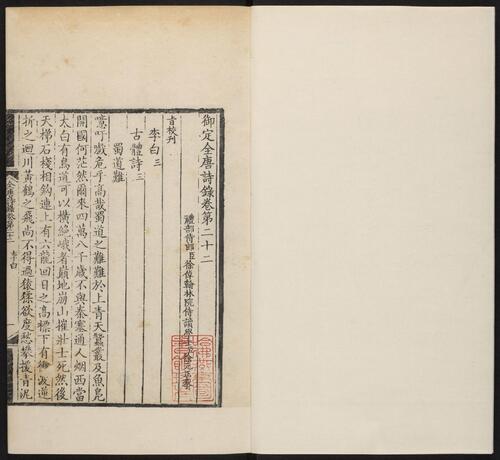 御定全唐詩錄卷第二十二
禮部侍郎臣徐倬翰林院侍讀學
旨校刊
李白三
古體詩三
蜀道難
噫吁嚱危乎高哉蜀道之難難於上青天蠶叢及魚鳧
開國何茫然爾來四萬八千歲不與秦塞通人烟西當
太白有鳥道可以橫絕峨眉巔地崩山摧壯士死然後
天梯石棧相鈎連上有六龍回日之高標下有衝波逆
折之迴川黃鶴之飛尚不得過猿猱欲度愁攀援青泥
全唐詩錄卷第二十二 李白 一